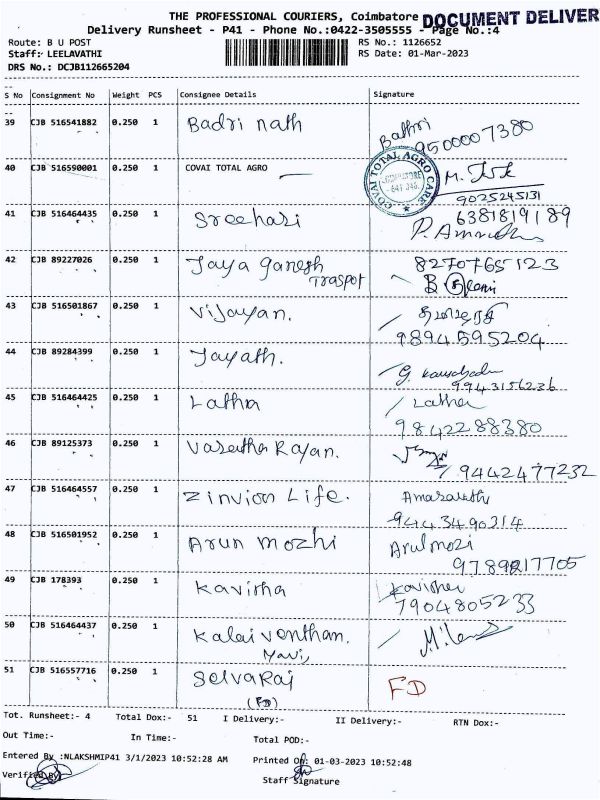 THE PROFESSIONAL COURIERS, Coimbatore DOCUMENT DELIVER
Delivery Runsheet - P41 - Phone No.:0422-3505555 - Page No.:4
Route: B U POST RS No.: 1126652
Staff: LEELAVATHI RS Date: 01-Mar-2023
DRS No.: DCJB112665204
S No Consignment No Weight PCS Consignee Details Signature
39 CJB 516541882 0.250 1 Badri nath Bathri 9500007380
40 CJB 516590001 0.250 1 COVAI TOTAL AGRO COVAI TOTAL AGRO CARE COIMBATORE M.
9025245131
41 CJB 516464435 0.250 1 Sreehari 6381819189
P.
42 CJB 89227026 0.250 1 Jaya ganesh 8270765123
Traspot B
43 CJB 516501867 0.250 1 Vijayan.
9894595204
44 CJB 89284399 0.250 1 Jayath. G.
9943156236
45 CJB 516464425 0.250 1 Latha Latha
9842288380
46 CJB 89125373 0.250 1 Vasutha Rajan.
9442477232
47 CJB 516464557 0.250 1 Zinvion Life. Amaravathi
9443490314
48 CJB 516501952 0.250 1 Arun mozhi Arulmozi
9789817705
49 CJB 178393 0.250 1 Kavisha
7904805233
50 CJB 516464437 0.250 1 Kalai venthan.
51 CJB 516557716 0.250 1 Selvaraj FD
(FD)
Tot. Runsheet:- 4 Total Dox:- 51 I Delivery:- II Delivery:- RTN Dox:-
Out Time:- In Time:- Total POD:-
Entered By :NLAKSHMIP41 3/1/2023 10:52:28 AM Printed On: 01-03-2023 10:52:48
Verified By: Staff Signature